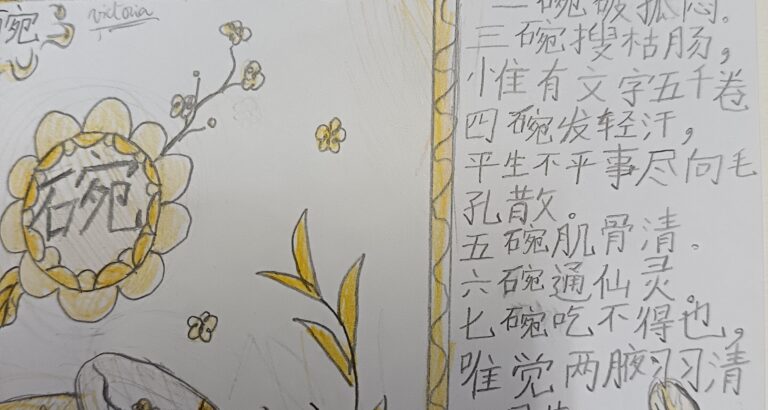 碗
victoria
碗
二碗破孤闷。
三碗搜枯肠，
惟有文字五千卷
四碗发轻汗，
平生不平事尽向毛
孔散。
五碗肌骨清。
六碗通仙灵。
七碗吃不得也，
唯觉两腋习习清